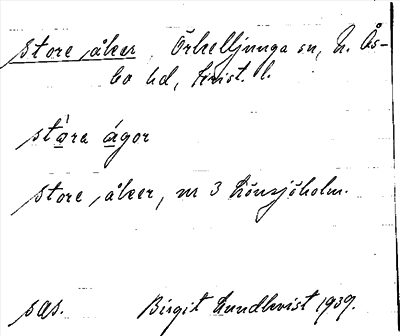 Store åker Örkelljunga sn, N. Ås-
bo hd, Krist. l.
stòra ágor
Store åker, nr 3 Lönsjöholm.
sas. Birgit Lundkvist 1939.